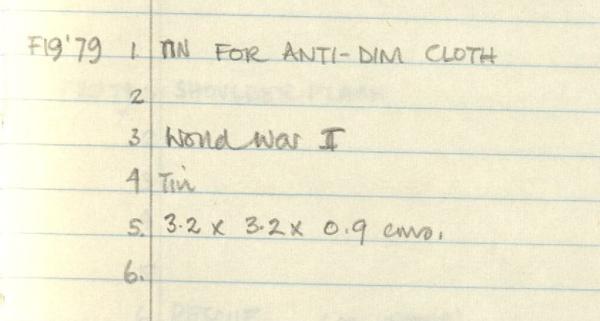 F19'79 1 TIN FOR ANTI-DIM CLOTH
2
3 World War II
4 Tin
5. 3.2 x 3.2 x 0.9 cms.
6.